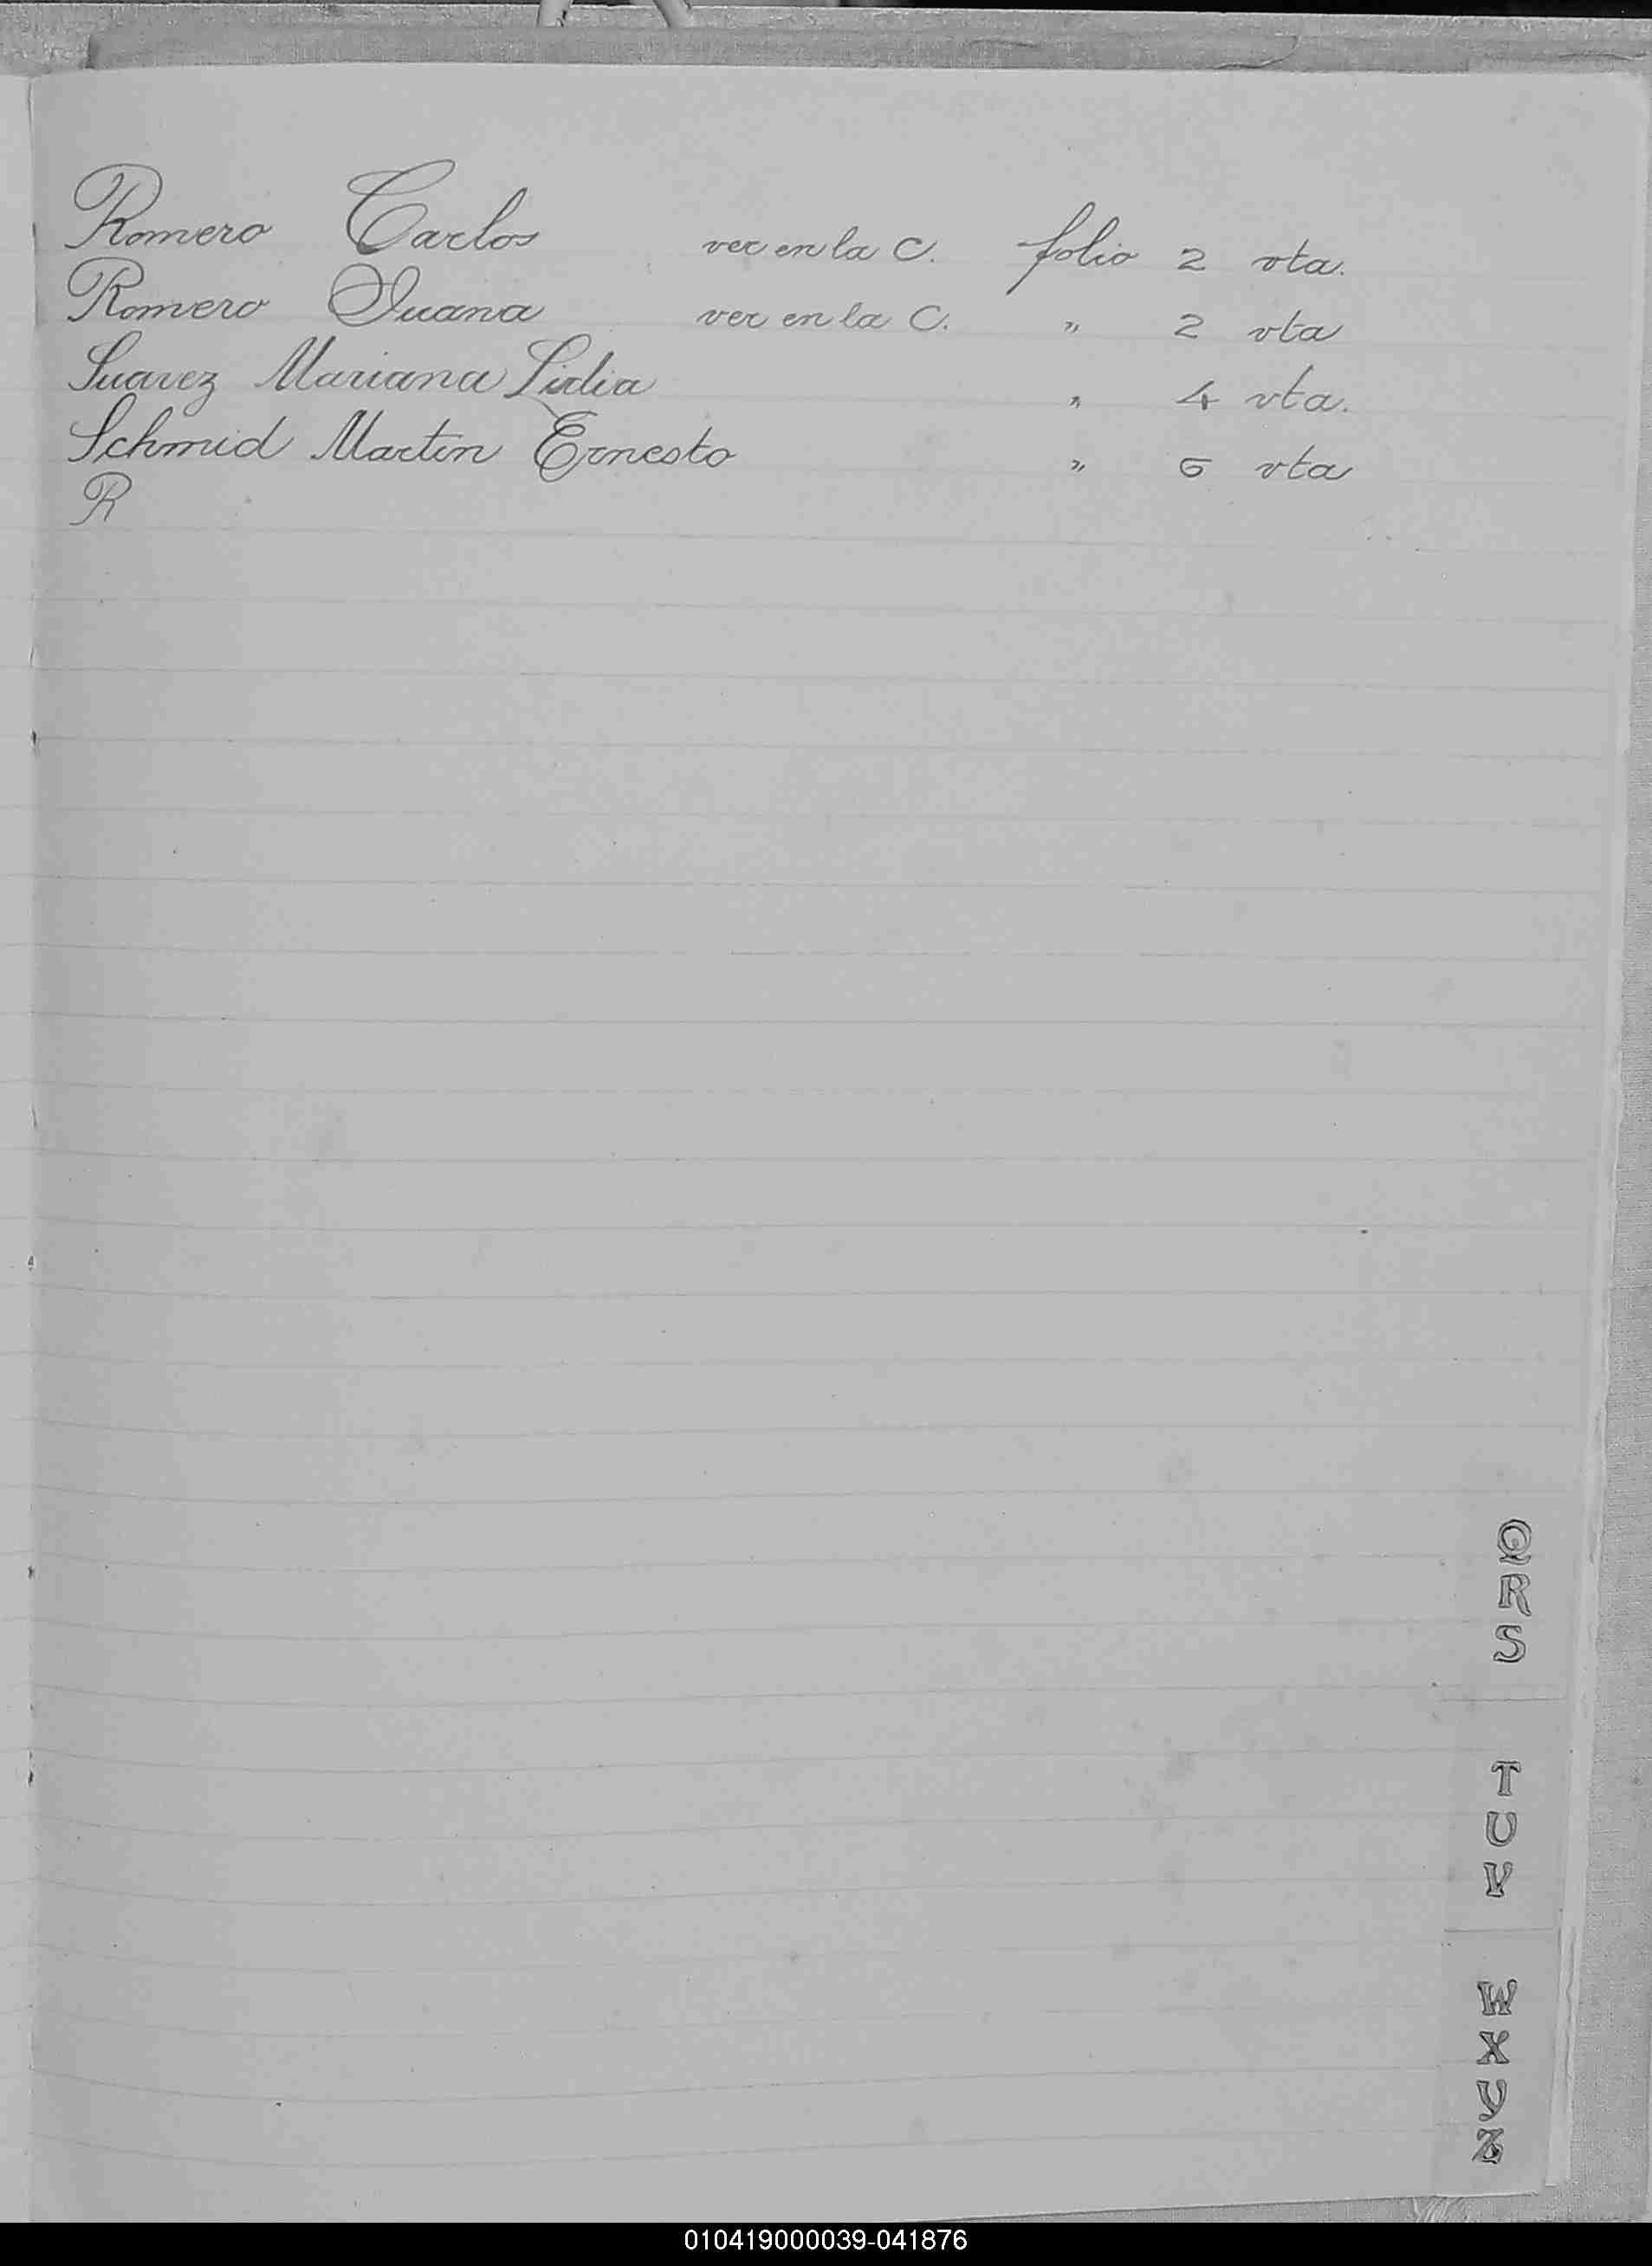 Romero Carlos ver en la C. folio 2 vta.
Romero Juana ver en la C. " 2 vta
Suarez Mariana Lidia " 4 vta.
Schmid Martin Ernesto " 6 vta
R
Q
R
S
T
U
V
W
X
Y
Z
010419000039-041876